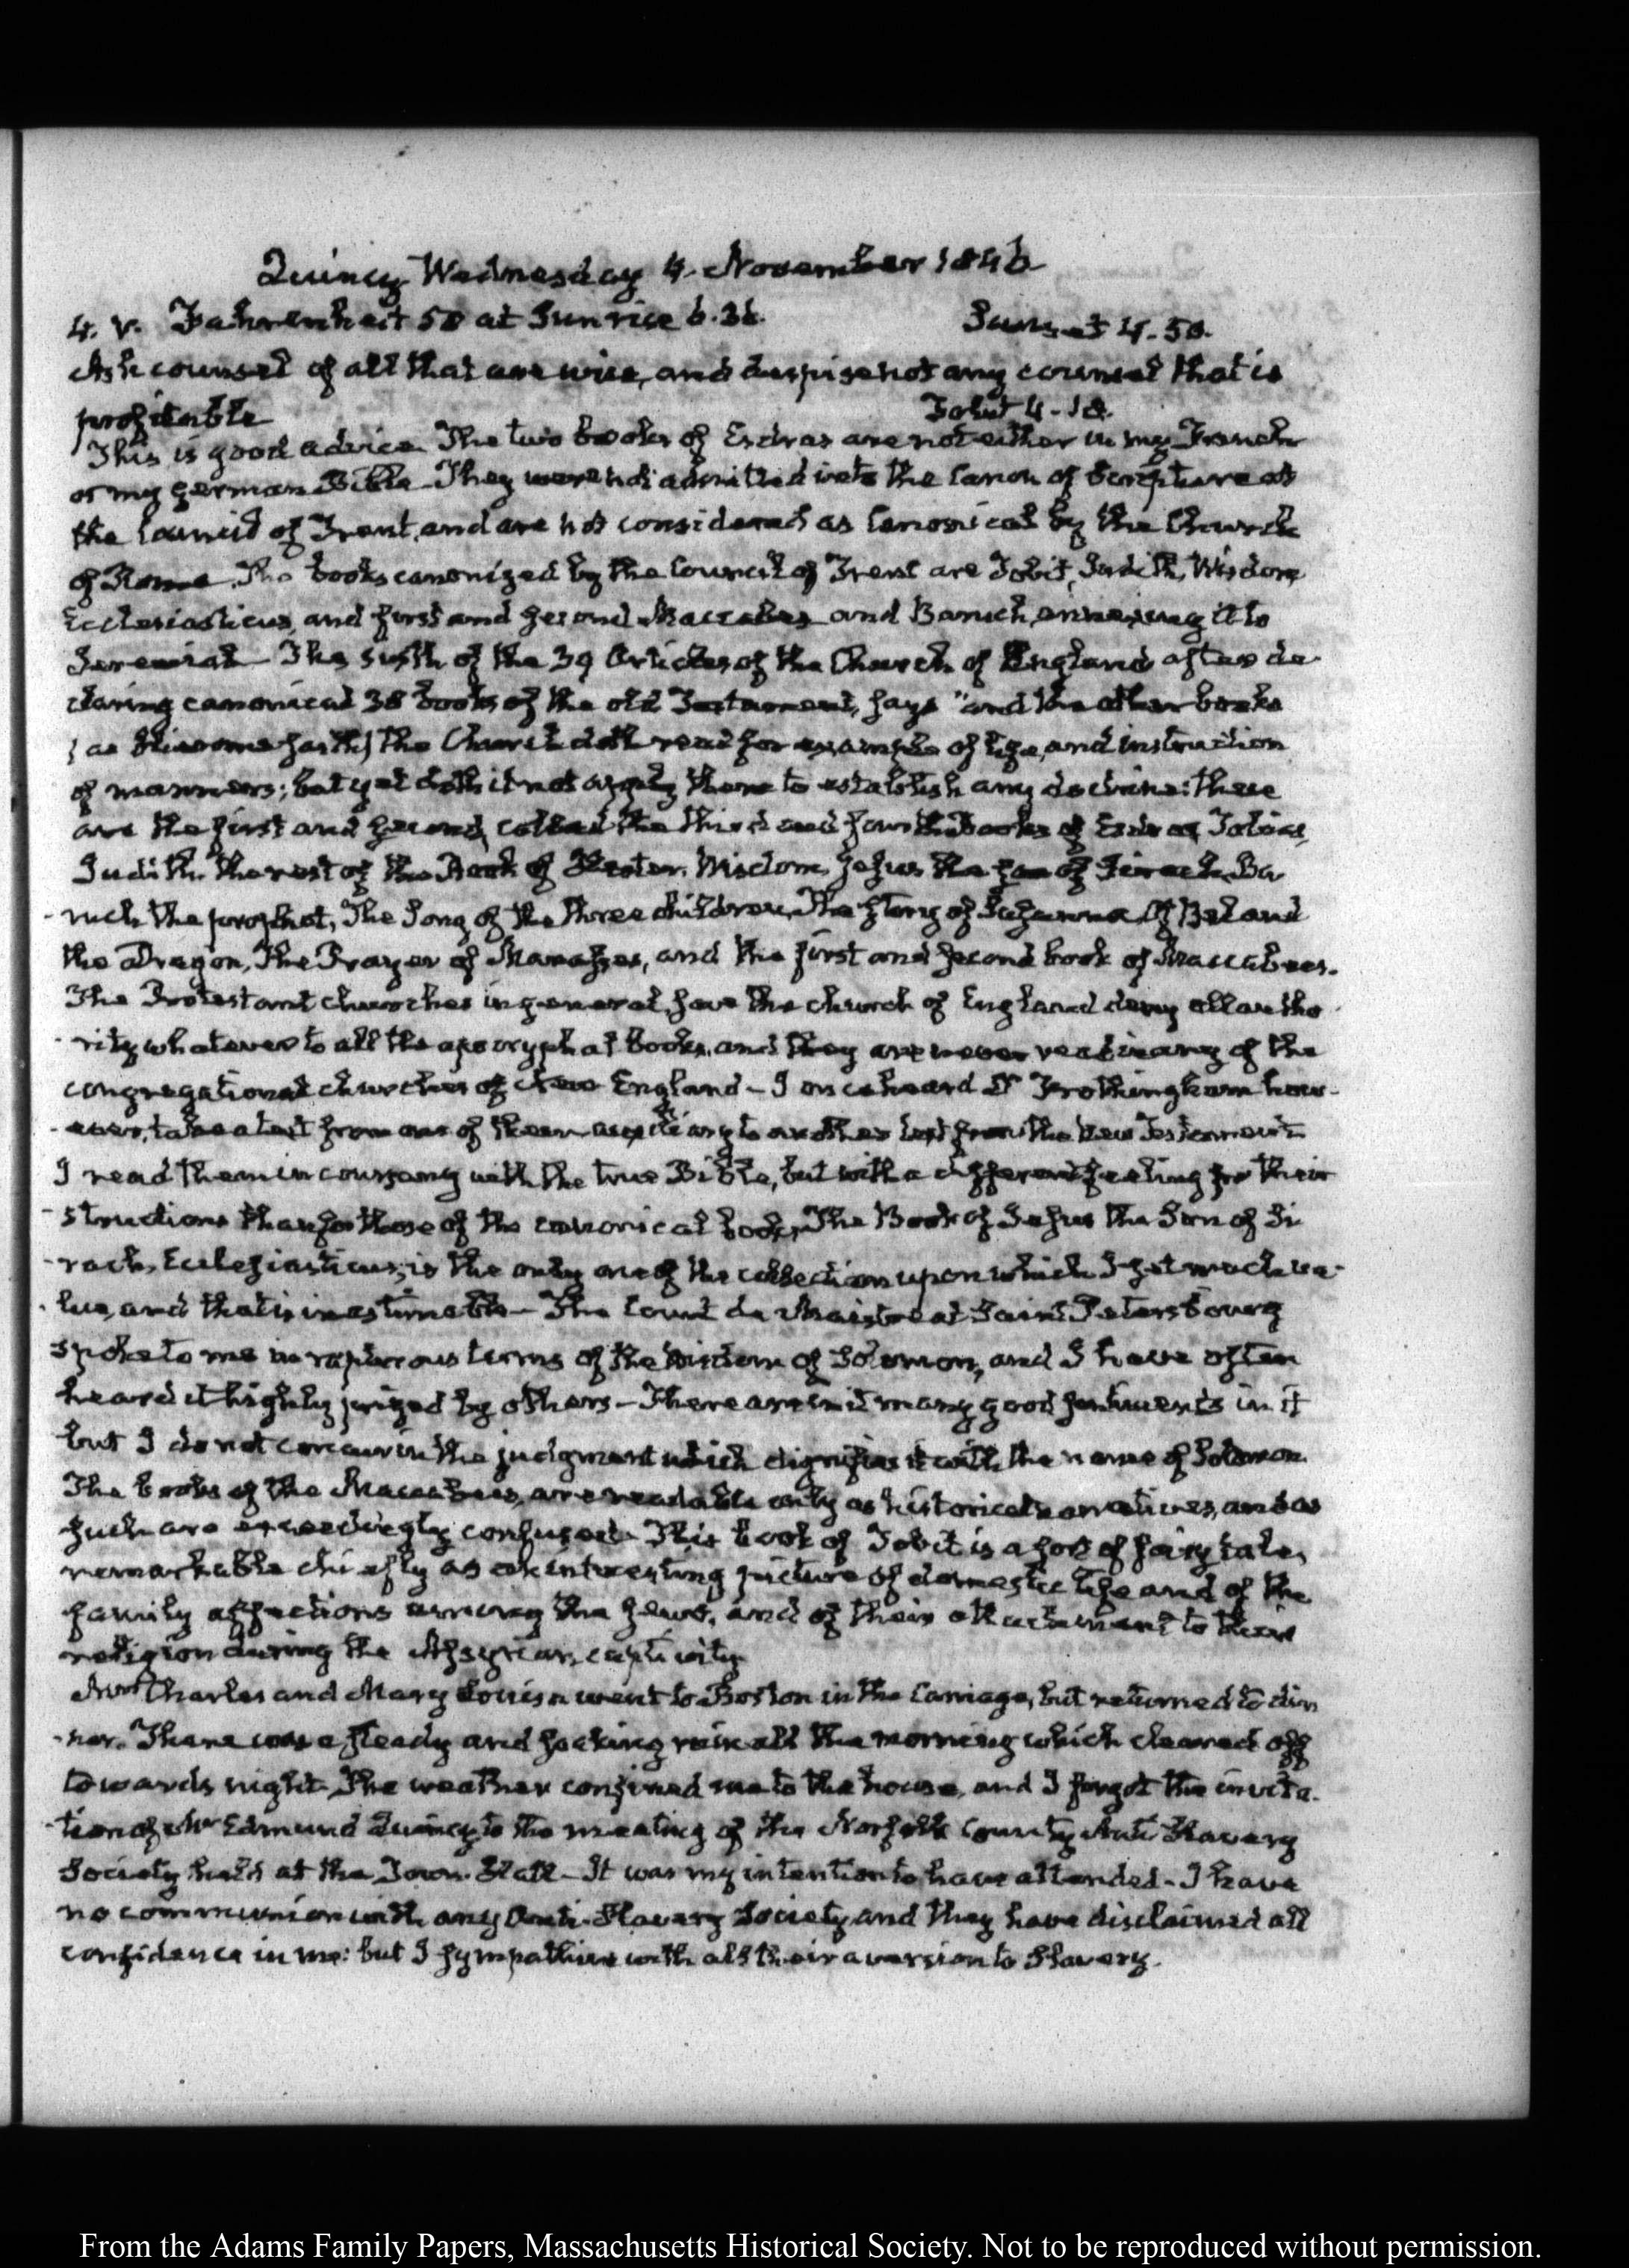 Quincy Wednesday 4. November 1846
4. V. Fahrenheit 58 at Sunrise 6.36. Sunset 4.50.
Ask counsel of all that are wise, and despise not any counsel that is
profitable Tobit 4-18.
This is good advice. The two books of Esdras are not either in my French
or my German Bible. They were not admitted into the Canon of Scripture at
the Council of Trent, and are not considered as Canonical by the Church
of Rome. The books canonized by the Council of Trent are Tobit, Judith, Wisdom,
Ecclesiasticus, and first and second Maccabees and Baruch, annexing it to
Jeremiah - The sixth of the 39 Articles of the Church of England after de
claring canonical 38 books of the old Testament, says "and the other books
(as Hierome saith) the Church doth read for example of life, and instruction
of manners; but yet doth it not apply them to establish any doctrine: these
are the first and second, called the third and fourth books of Esdras, Tobias,
Judith, the rest of the Book of Hester, Wisdom, Jesus the son of Sirach, Ba
-ruch the prophet, The Song of the three children, The Story of Susanna, Of Bel and
the Dragon, The Prayer of Manasses, and the first and second book of Maccabees.
The Protestant churches in general, save the church of England deny all autho
-rity whatever to all the apocryphal books, and they are never read in any of the
congregational churches of New England - I once heard Dr Frothingham how-
-ever, take a text from one of them annexing to another text from the New Testament
I read them in company with the true Bible, but with a different feeling for their
-structions than for those of the canonical books, The Book of Jesus the Son of Si
-rach, Ecclesiasticus, is the only one of the collection upon which I set much va-
-lue, and that is inestimable - The Count de Maistre at Saint Petersbourg
spoke to me in rapturous terms of the Wisdom of Solomon, and I have often
heard it highly prized by others - There are in it many good sentiments in it
but I do not concur in the judgment which dignifies it with the name of Solomon.
The books of the Maccabees, are readable only as historical narratives, and as
such are exceedingly confused. This book of Tobit is a sort of fairy tale,
remarkable chiefly as an interesting picture of domestic life and of the
family affections among the Jews, and of their attachment to their
religion during the Assyrian captivity.
Mrs Charles and Mary Louisa went to Boston in the Carriage, but returned to din
-ner. There was a steady and soaking rain all the morning which cleared off
towards night. The weather confined me to the house, and I forgot the invita-
-tion of Mr Edmund Quincy to the meeting of the Norfolk County Anti Slavery
Society held at the Town Hall - It was my intention to have attended - I have
no communion with any Anti-Slavery Society, and they have disclaimed all
confidence in me: but I sympathize with all their aversion to Slavery.
From the Adams Family Papers, Massachusetts Historical Society. Not to be reproduced without permission.